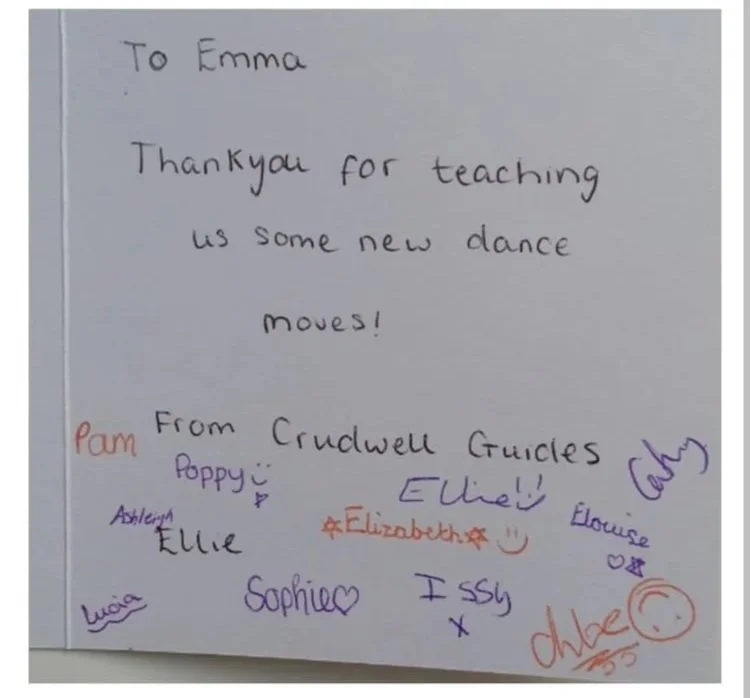 To Emma
Thankyou for teaching
us some new dance
moves!
From Crudwell Guides
Pam
Cathy
Poppy
Ellie
Ashleigh
Ellie
Elizabeth
Elouise
Lucia
Sophie
Issy
x
chloe